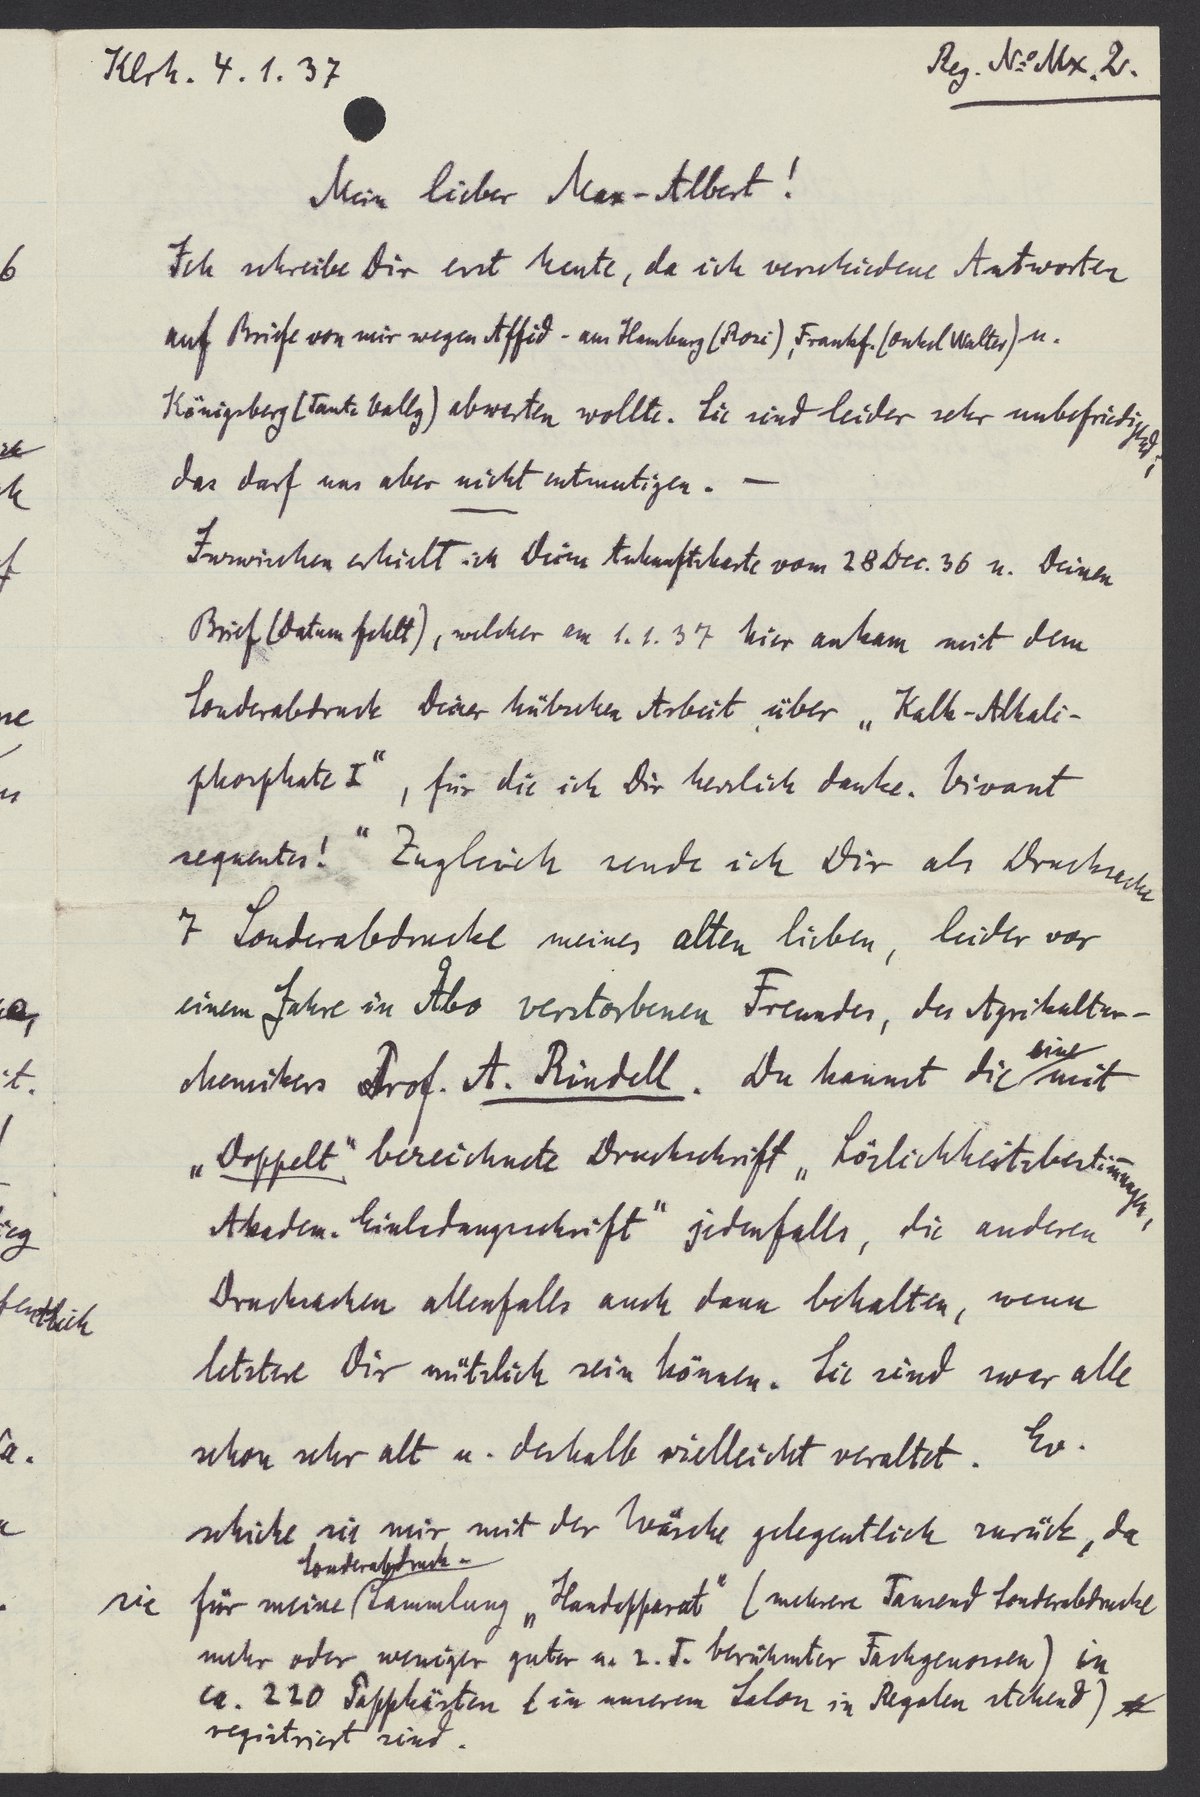 Klrh. 4.1.37
Reg. No Mx. 2.
Mein lieber Max-Albert!
Ich schreibe Dir erst heute, da ich verschiedene Antworten
auf Briefe von mir wegen Affid - aus Hamburg (Rosi), Frankf. (Onkel Walter) u.
Königsberg (Tante Vally) abwarten wollte. Sie sind leider sehr unbefriedigend;
das darf uns aber nicht entmutigen. —
Inzwischen erhielt ich Deine Ankunftskarte vom 28 Dec. 36 u. Deinen
Brief (Datum fehlt), welcher am 1.1.37 hier ankam mit dem
Sonderabdruck Deiner hübschen Arbeit über „Kalk-Alkali-
phosphate I“, für die ich Dir herzlich danke. Vivant
sequentes!“ Zugleich sende ich Dir als Drucksache
7 Sonderabdrucke meines alten lieben, leider vor
einem Jahre in Åbo verstorbenen Freundes, des Agrikultur-
chemikers Prof. A. Rindell. Du kannst die eine mit
„Doppelt“ bezeichnete Druckschrift „Löslichkeitsbestimmungen,
Akadem. Einladungsschrift“ jedenfalls, die anderen
Drucksachen allenfalls auch dann behalten, wenn
letztere Dir nützlich sein können. Sie sind zwar alle
schon sehr alt u. deshalb vielleicht veraltet. Ev.
schicke sie mir mit der Wäsche gelegentlich zurück, da
sie für meine Sonderabdruck-Sammlung „Handapparat“ (mehrere Tausend Sonderabdrucke
mehr oder weniger guter u. z. T. berühmter Fachgenossen) in
ca. 220 Pappkästen (in unserem Salon in Regalen stehend)
registriert sind.